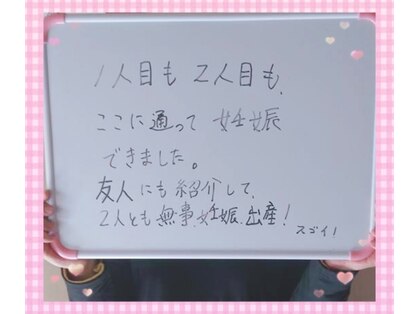 1人目も 2人目も、
ここに通って 妊娠
できました。
友人にも紹介して、
2人とも 無事、妊娠、出産!
スゴイ!